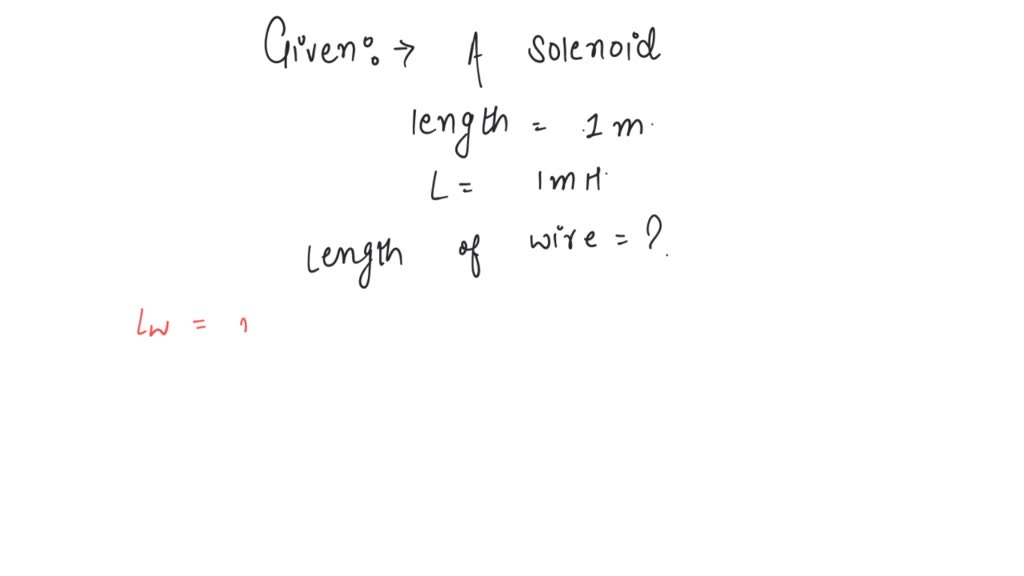 Given:→ A solenoid
length = 1 m.
L = 1 m H.
Length of wire = ?
Lw =